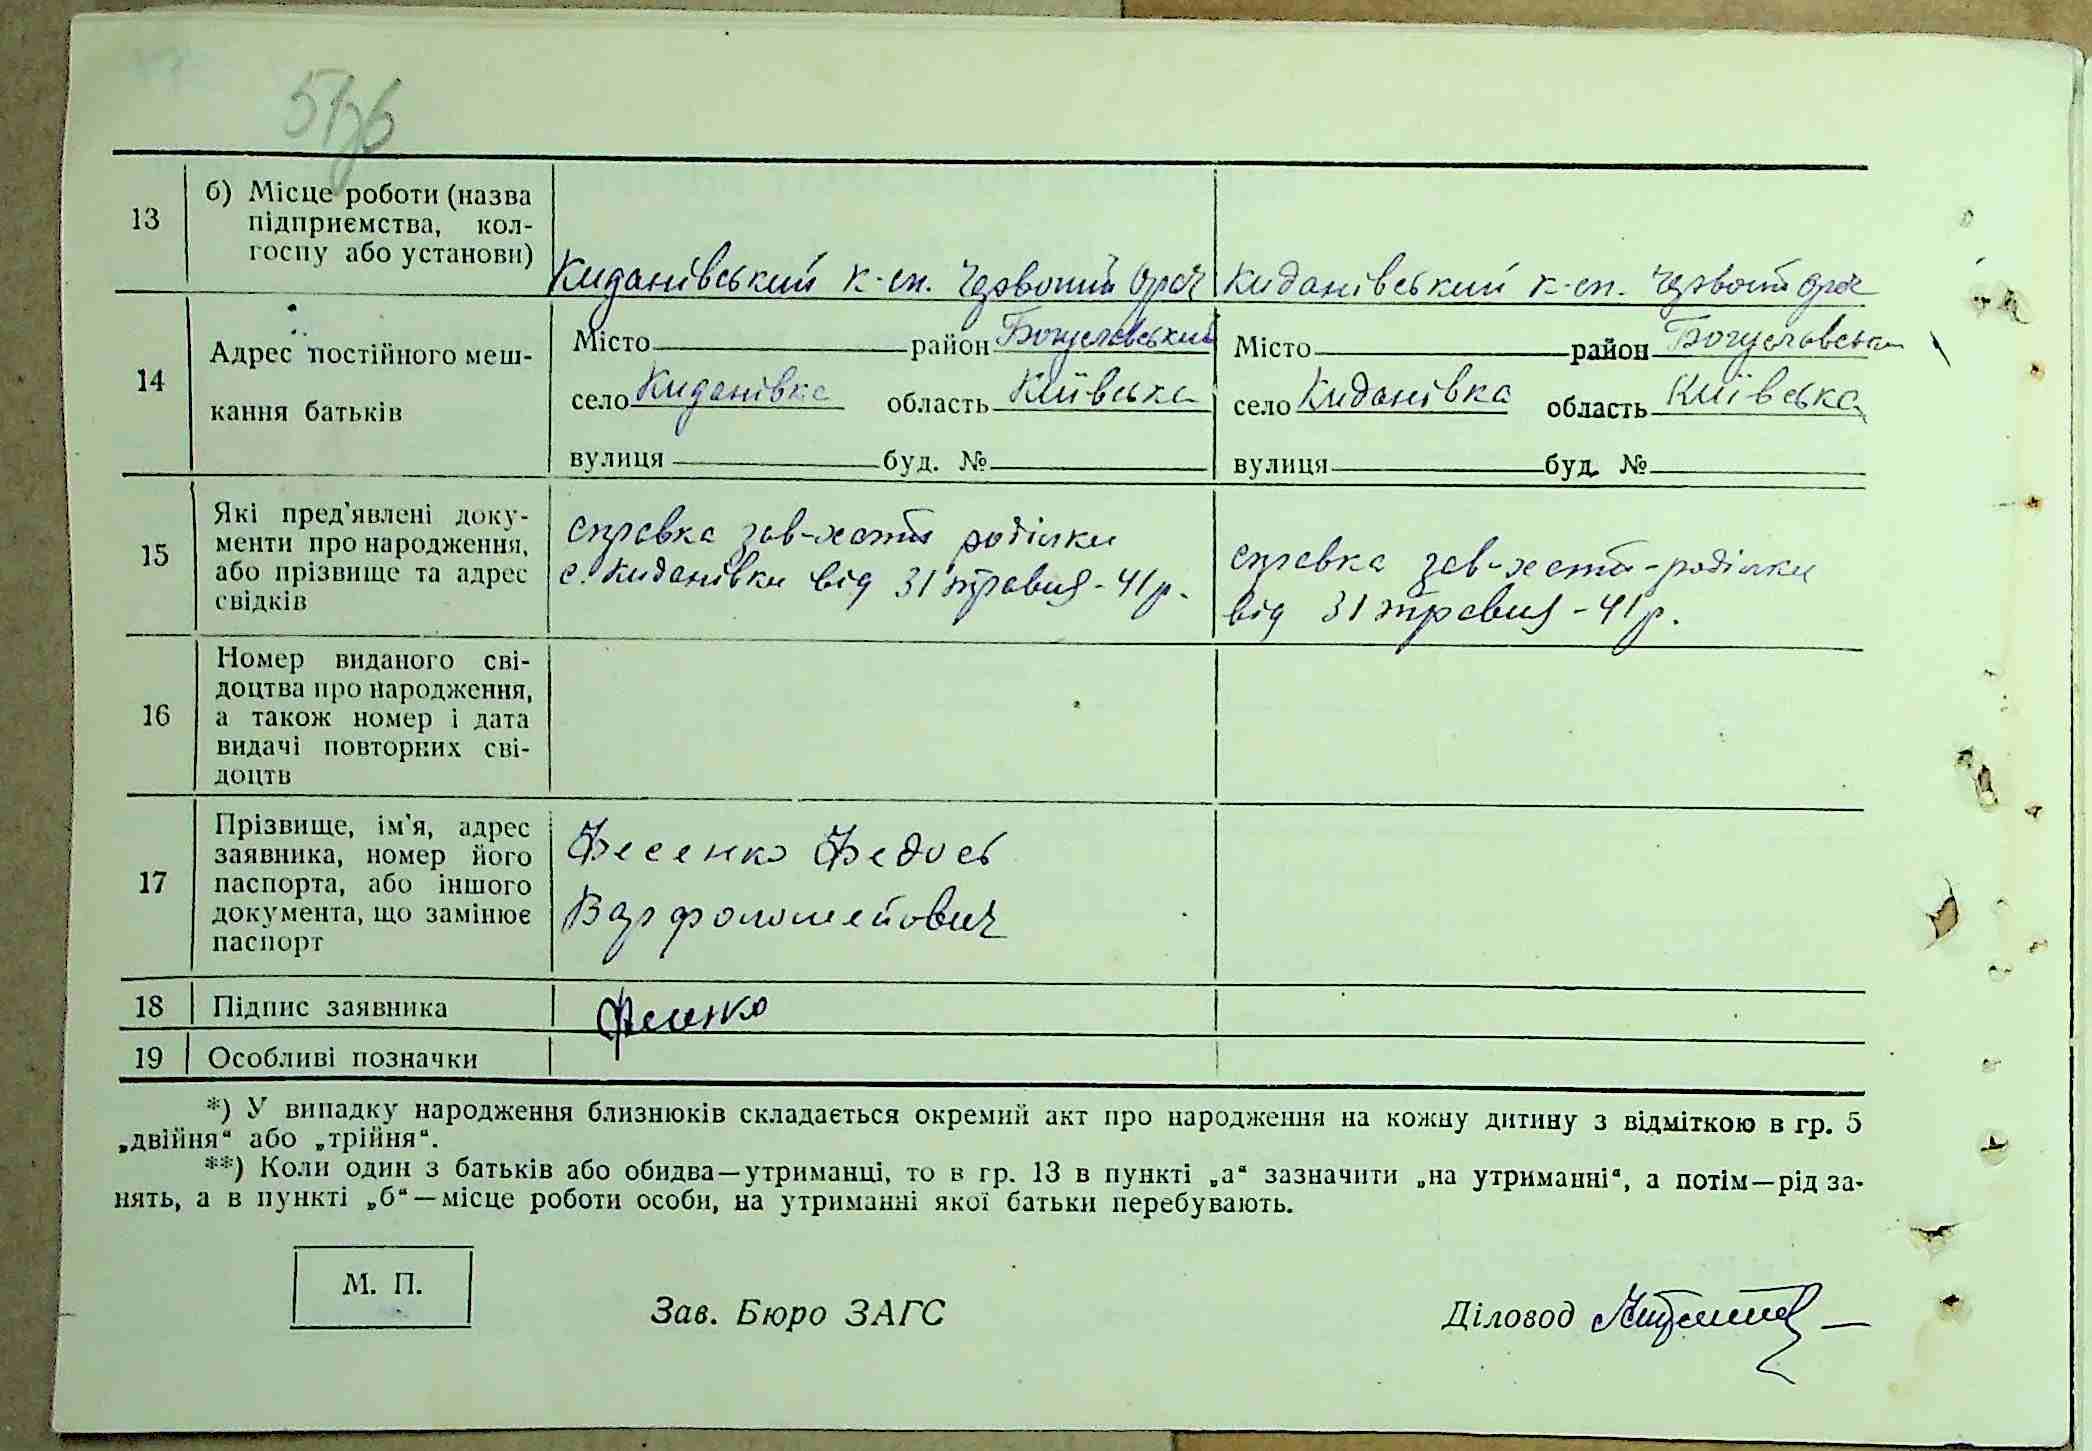 13 б) Місце роботи (назва
підприємства, кол-
госпу або установи)
Киданівський к-сп. Червоний орач Киданівський к-сп. Червоний орач
14 Адрес постійного меш-
кання батьків
Місто район Богуславський Місто район Богуславськи
село Киданівка область Київська село Киданівка область Київська
вулиця буд. № вулиця буд. №
15 Які пред'явлені доку-
менти про народження,
або прізвище та адрес
свідків
справка зав-хати роділки
с. Киданівки від 31 травня - 41р.
справка зав-хати-роділки
від 31 травня - 41р.
16 Номер виданого сві-
доцтва про народження,
а також номер і дата
видачі повторних сві-
доцтв
17 Прізвище, ім'я, адрес
заявника, номер його
паспорта, або іншого
документа, що замінює
паспорт
Фесенко Федось
Варфоломейович
18 Підпис заявника Фесенко
19 Особливі позначки
*) У випадку народження близнюків складається окремий акт про народження на кожну дитину з відміткою в гр. 5
„двійня“ або „трійня“.
**) Коли один з батьків або обидва—утриманці, то в гр. 13 в пункті „а“ зазначити „на утриманні“, а потім—рід за-
нять, а в пункті „б“—місце роботи особи, на утриманні якої батьки перебувають.
М. П.
Зав. Бюро ЗАГС Діловод